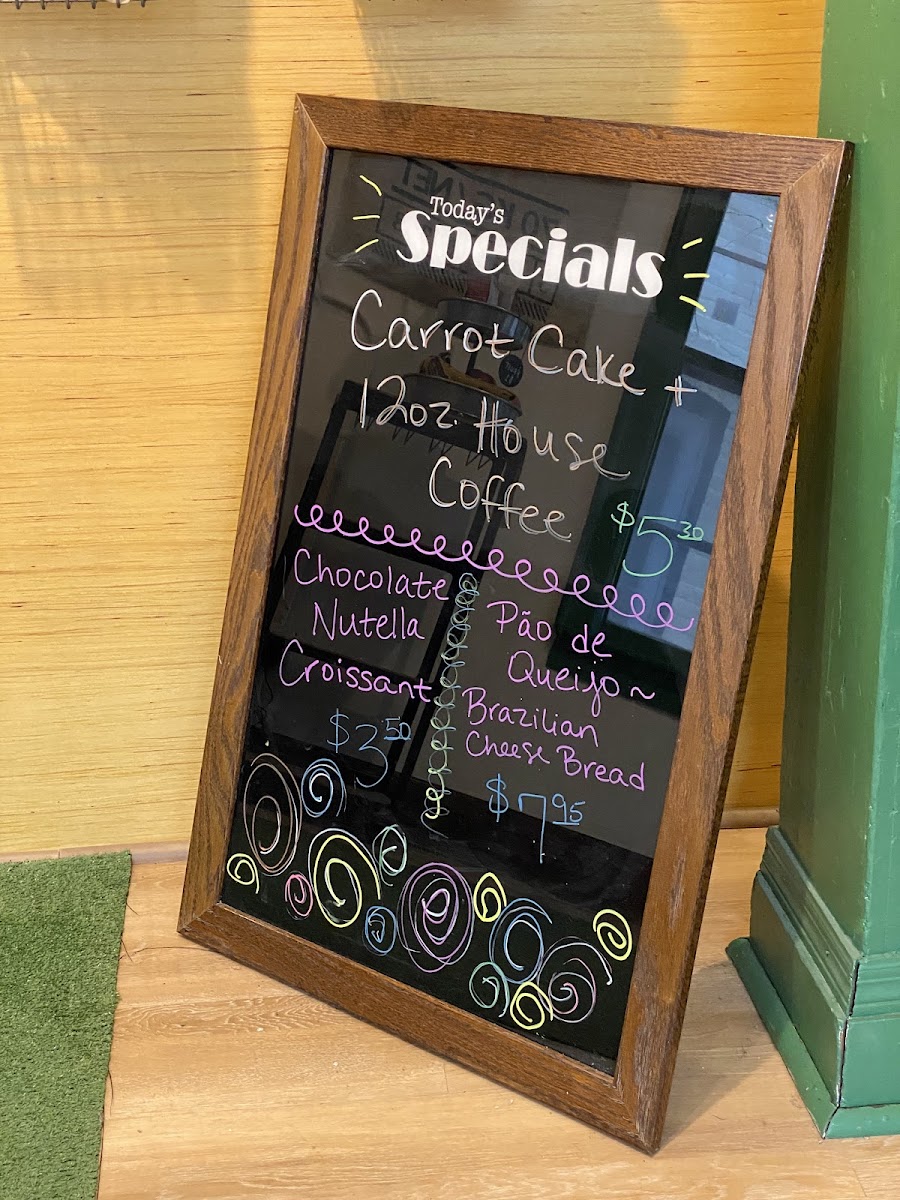 Today's
Specials
Carrot Cake +
12oz. House
Coffee
$5.30
Chocolate
Nutella
Croissant
$3.50
Pão de
Queijo ~
Brazilian
Cheese Bread
$7.95